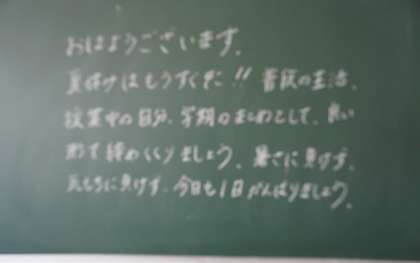 おはようございます。
夏休みはもうすぐだ!! 普段の生活、
授業中の自分、学期のまとめとして、良い
形で締めくくりましょう。暑さに負けず、
気もちに負けず、今日も1日がんばりましょう。